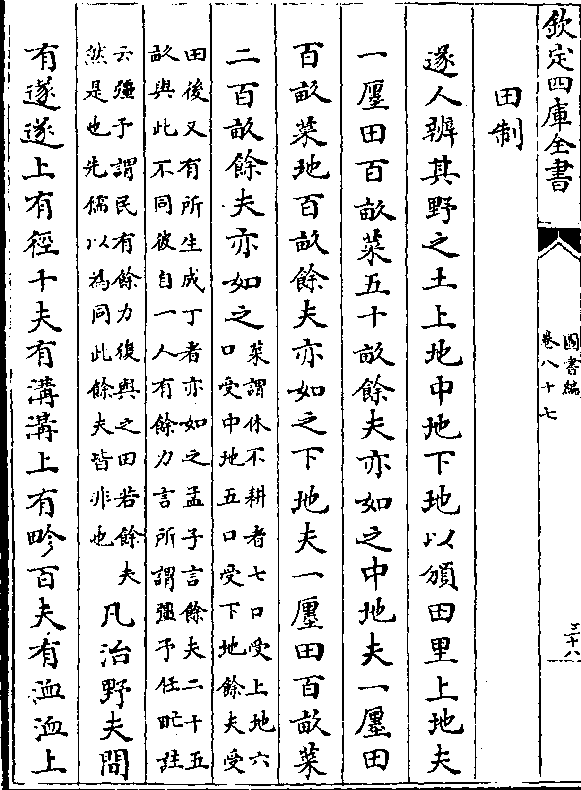 欽定四庫全書
圖書編
卷八十七
三十八
田制
遂人辨其野之土上地中地下地以頒田里上地夫
一廛田百畝菜五十畝餘夫亦如之中地夫一廛田
百畝菜地百畝餘夫亦如之下地夫一廛田百畝菜
二百畝餘夫亦如之
菜謂休不耕者七口受上地六
口受中地五口受下地餘夫受
田後又有所生成丁者亦如之孟子言餘夫二十五
畝與此不同彼自一人有餘力言所謂彊予任甿註
云彊予謂民有餘力復與之田若餘夫
然是也先儒以為同此餘夫皆非也
凡治野夫間
有遂遂上有徑十夫有溝溝上有畛百夫有洫洫上